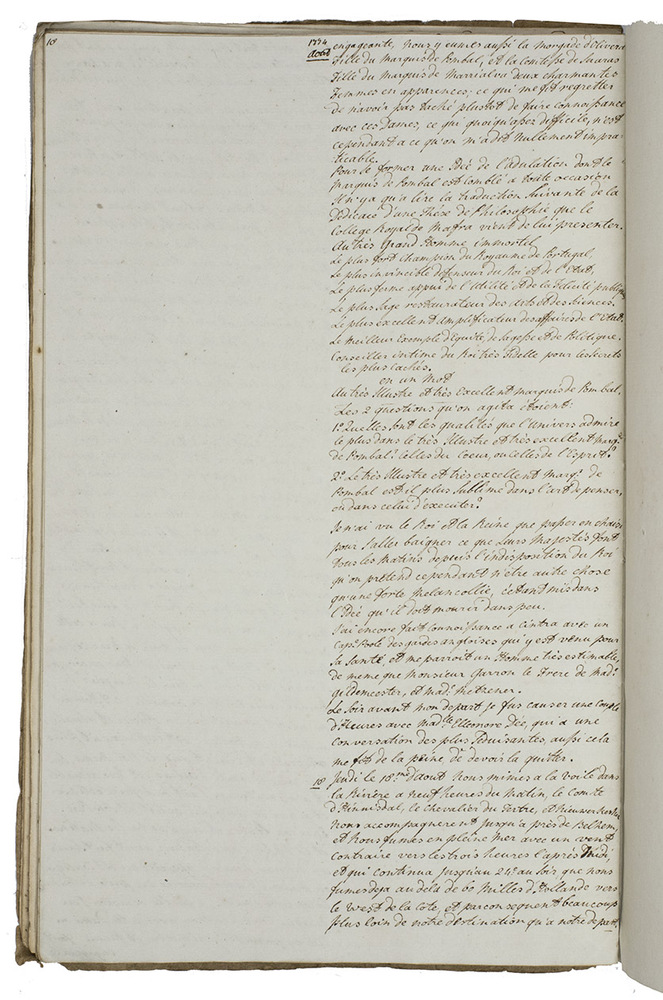 18
1774
Août
engageante, nous y eumes aussi la Morgade d'Oliveira
Fille du Marquis de Pombal, et la Comtesse de
Fille du Marquis de Marrialva deux charmantes
Femmes en apparences; ce qui me fit regretter
de n'avoir pas taché plustot de faire connoissance
avec ces Dames, ce qui quoiqu'assez difficile, n'est
cependant a ce qu'on m'a dit Nullement impra-
ticable.
Pour se former une Idée de l'adulation dont le
Marquis de Pombal est Comblé a toute occasion
Il n'y a qu'a lire la traduction Suivante de la
Dédicace d'une Thése de Philosophie que le
College Royal de Mafra vient de lui presenter.
Au trés Grand Homme immortel
Le plus fort Champion du Royaume de Portugal,
Le plus invincible defenseur du Roi et de l'Etat,
Le plus ferme appui de l'Utilité et de la félicité publique
Le plus Sage restaurateur des arts et des Siences.
Le plus excellent amplificateur des affaires de l'Etat.
Le Meilleur Exemple d'Equité, de Sagesse et de Politique.
Conseiller intime du Roi trés fidelle pour les Secrets
les plus Cachés.
en un Mot
Au trés Illustre et trés Excellent Marquis de Pombal.
Les 2 questions qu'on agita étoient:
1º Quelles sont les qualités que l'Univers admire
le plus dans le trés Illustre et trés excellent Marq.
de Pombal? Celles du Coeur, ou celles de l'Esprit?
2º Le trés Illustre et trés excellent Marq. de
Pombal est il plus Sublime dans l'art de penser,
ou dans celui d'executer?
Je n'ai vu le Roi et la Reine que passer en chaise
pour S'aller baigner ce que Leurs Majestés font
tous les Matins depuis l'indisposition du Roi
qu'on pretend cependant n'etre autre chose
qu'une forte Melancollie, s'etant mis dans
l'Idée qu'il doit mourir dans peu.
J'ai encore fait Connoissance a Cintra avec un
Capn. Poole des gardes angloises qui y est venu pour
Sa Santé et me parroit un Homme trés estimable,
de meme que Monsieur Garron le Frere de Made.
Gildemeester, et Made. Metrener.
Le Soir avant mon depart je fus causer une Couple
d'Heures avec Madlle. Eleonore Dée, qui a une
Conversation des plus Seduisantes, aussi cela
me fit de la peine, de devois la quitter.
18
Jeudi le 18me. d'Aout Nous mimes a la voile dans
la Rivière a neuf heures du Matin, le Comte
d'Hinnisdal, le Chevalier du Tertre, et Nieuwerkerke
nous acompagnerent jusqu'a près de Belhem,
et nous fumes en pleine Mer avec un vent
Contraire vers les trois heures l'aprés Midi,
et qui continua jusqu'au 24. au Soir, que nous
fumes deja au dela de 60 Milles d'Hollande vers
le West de la Cote, et par consequent beaucoup
plus loin de notre destination qu'a notre depart.